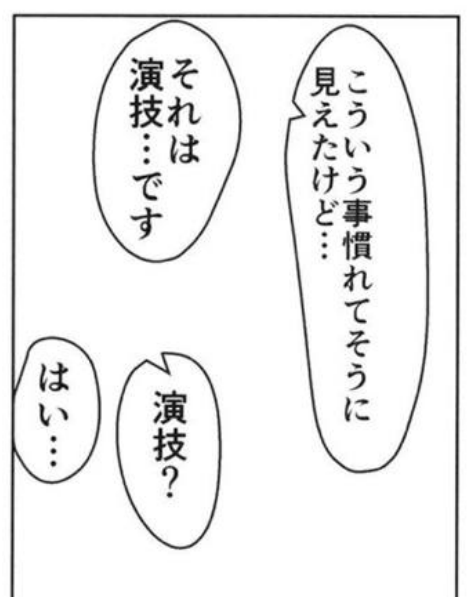 こういう事慣れてそうに
見えたけど…
それは
演技…です
演技？
はい…